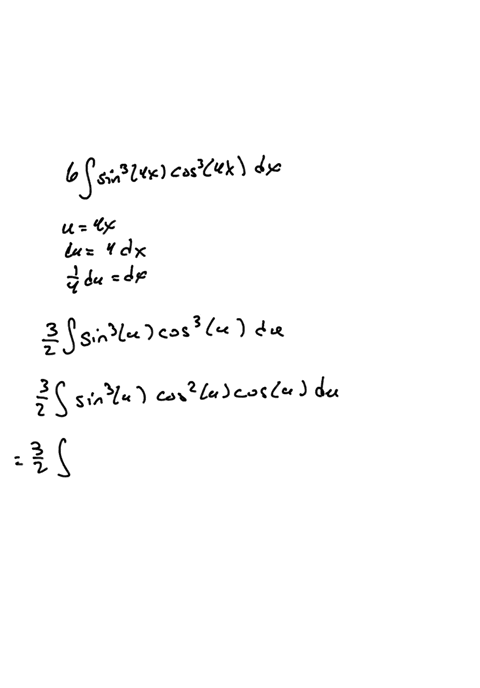 6∫sin³(4x)cos³(4x) dx
u = 4x
du = 4 dx
1/4 du = dx
3/2 ∫sin³(u)cos³(u) du
3/2 ∫ sin³(u) cos²(u)cos(u) du
= 3/2 ∫